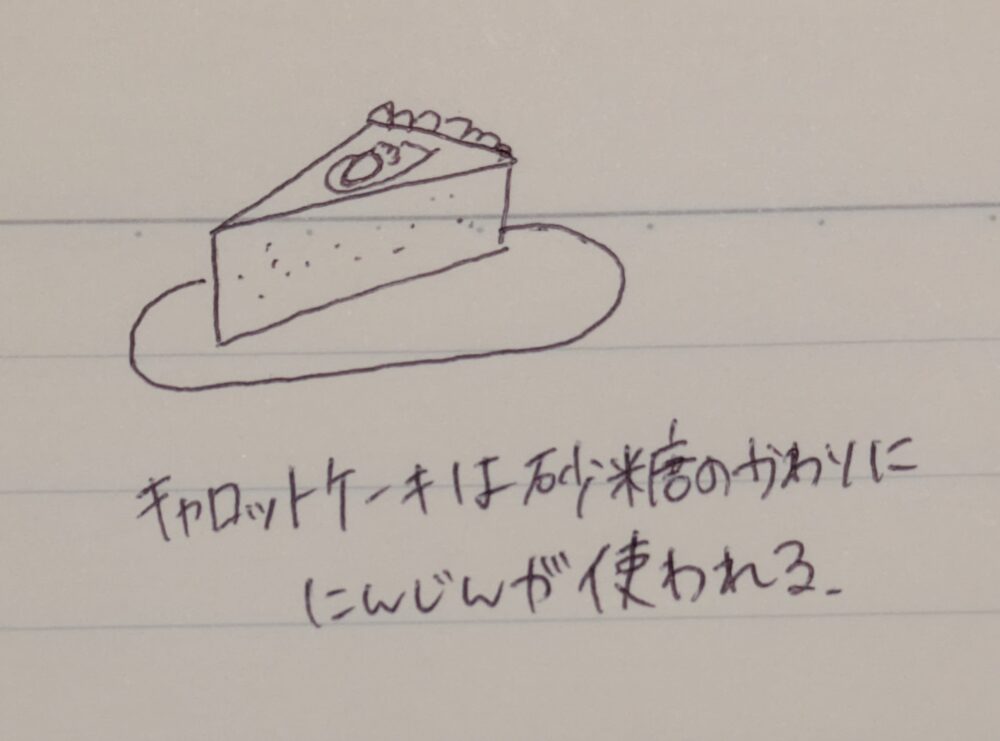 キャロットケーキは砂糖のかわりに
にんじんが使われる.